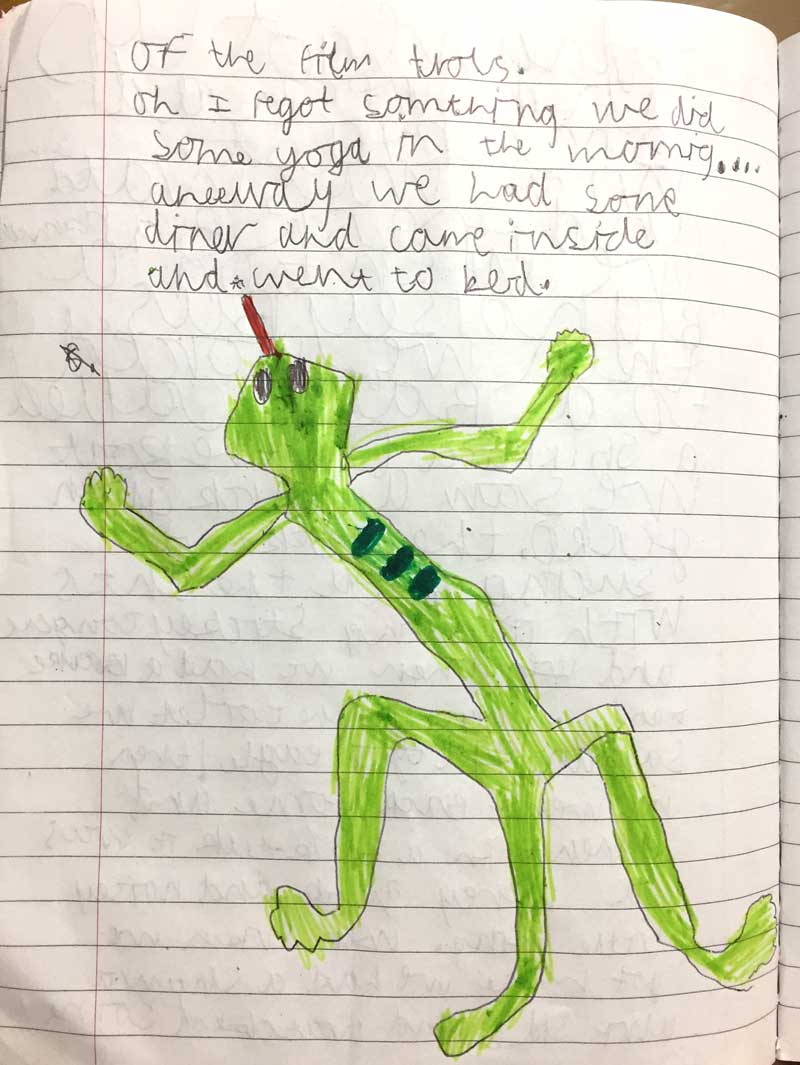 of the film trols.
oh I fegot somthing we did
some yoga in the mornig....
aneeway we had some
diner and came inside
and went to bed.